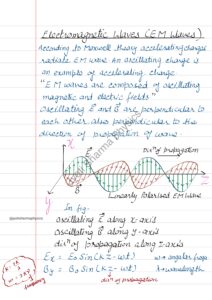 Electromagnetic Waves (EM Waves)
According to Maxwell theory accelerating charges
radiate EM wave. An oscillating charge is
an example of accelerating charge.
"EM waves are composed of oscillating
magnetic and electric fields"
Oscillating E⃗ and B⃗ are perpendicular to
each other also perpendicular to the
direction of propagation of wave.
X
E⃗
dirⁿ of propagation
Z
B⃗
Y
Linearly Polarised EM Wave
In fig:
oscillating E⃗ along x-axis
oscillating B⃗ along y-axis
dirⁿ of propagation along z-axis
Ex = E₀ Sin (kz - ωt)
ω → angular freq.
By = B₀ Sin (kz - ωt)
dirⁿ of propagation